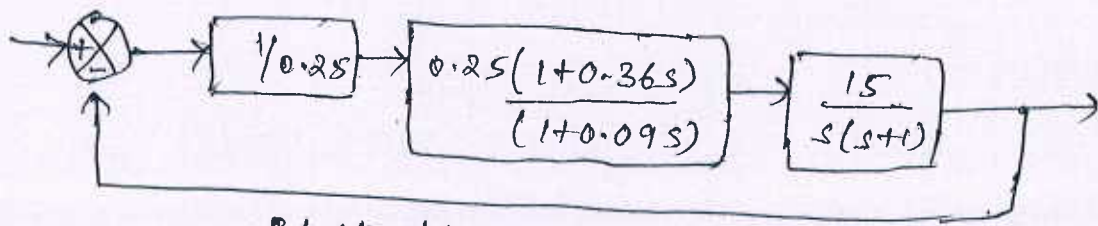 +
-
1/0.25
0.25(1+0.36s)
(1+0.09s)
15
s(s+1)